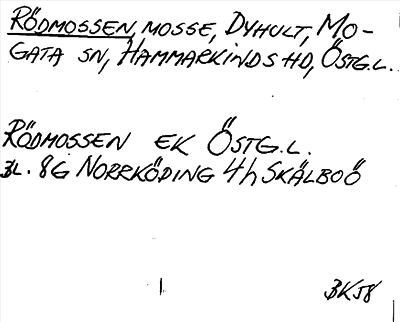 RÖDMOSSEN, MOSSE, DYHULT, MO-
GATA SN, HAMMARKINDS HD, ÖSTG.L.
RÖDMOSSEN EK ÖSTG.L.
BL. 8G NORRKÖDING 4h SKÄLBOÖ
BK58